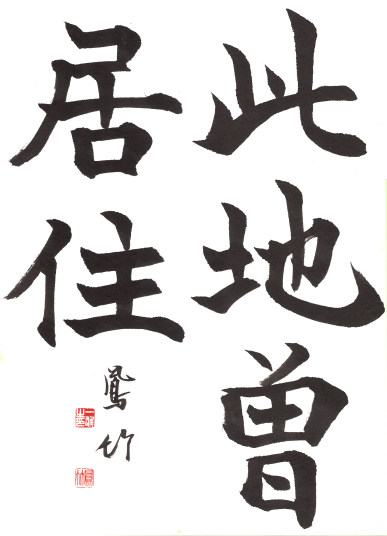 此地曽
居住
鳳竹